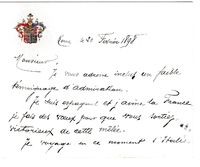 Rome le 20 Février 1898
Monsieur,
Je vous adresse inclus un faible
témoignage d'admiration.
Je suis espagnol et j'aime la France
je fais des vœux pour que vous sortiez
victorieux de cette mêlée.
Je voyage en ce moment l'Italie